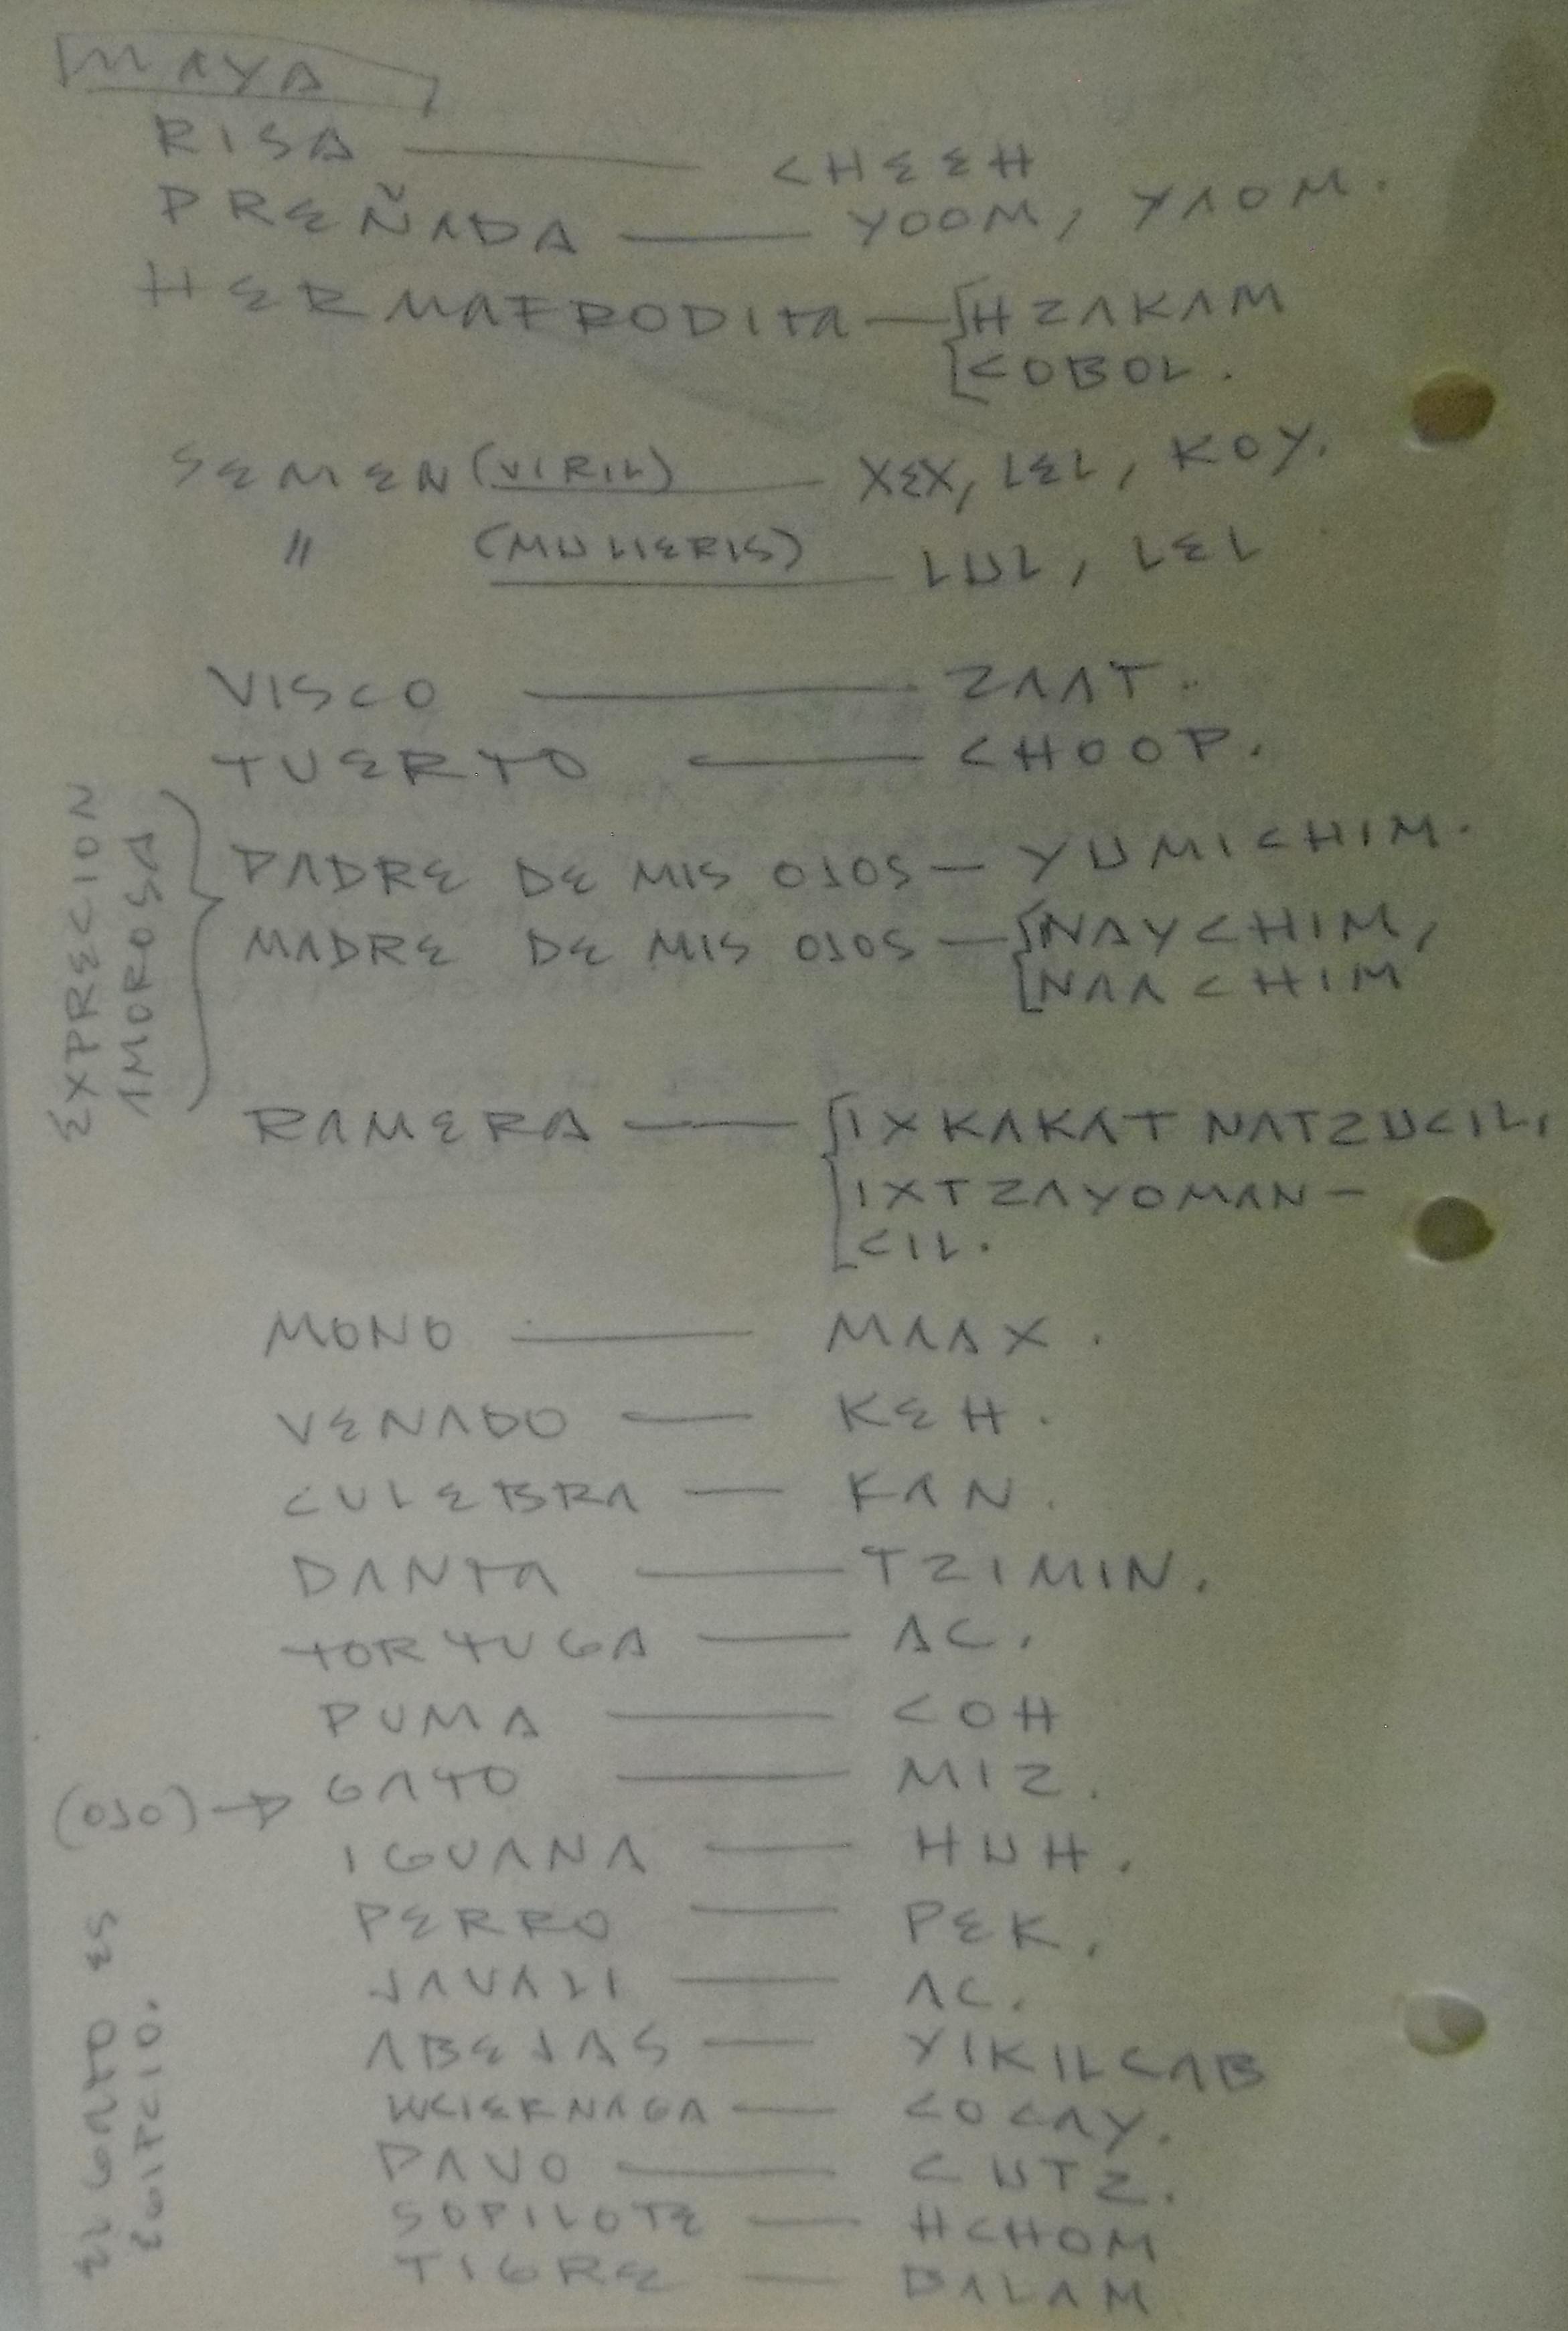 MAYA
RISA — CHEEH
PREÑADA — YOOM, YAOM.
HERMAFRODITA — HZAKAM
COBOL.
SEMEN (VIRIL) — XEX, LEL, KOY.
" (MULIERIS) — LUL, LEL
VISCO — ZAAT.
TUERTO — CHOOP.
EXPRECION
AMOROSA
PADRE DE MIS OJOS — YUMICHIM.
MADRE DE MIS OJOS — NAYCHIM,
NAACHIM
RAMERA — IXKAKAT NATZUCIL,
IXTZAYOMAN-
CIL.
MONO — MAAX.
VENADO — KEH.
CULEBRA — KAN.
DANTA — TZIMIN.
TORTUGA — AC.
PUMA — COH
(OJO) → GATO — MIZ.
IGUANA — HUH.
PERRO — PEK.
JAVALI — AC.
ABEJAS — YIKILCAB
LUCIERNAGA — COCAY.
PAVO — CUTZ.
SOPILOTE — HCHOM
TIGRE — BALAM
EL GATO ES
EGIPCIO.